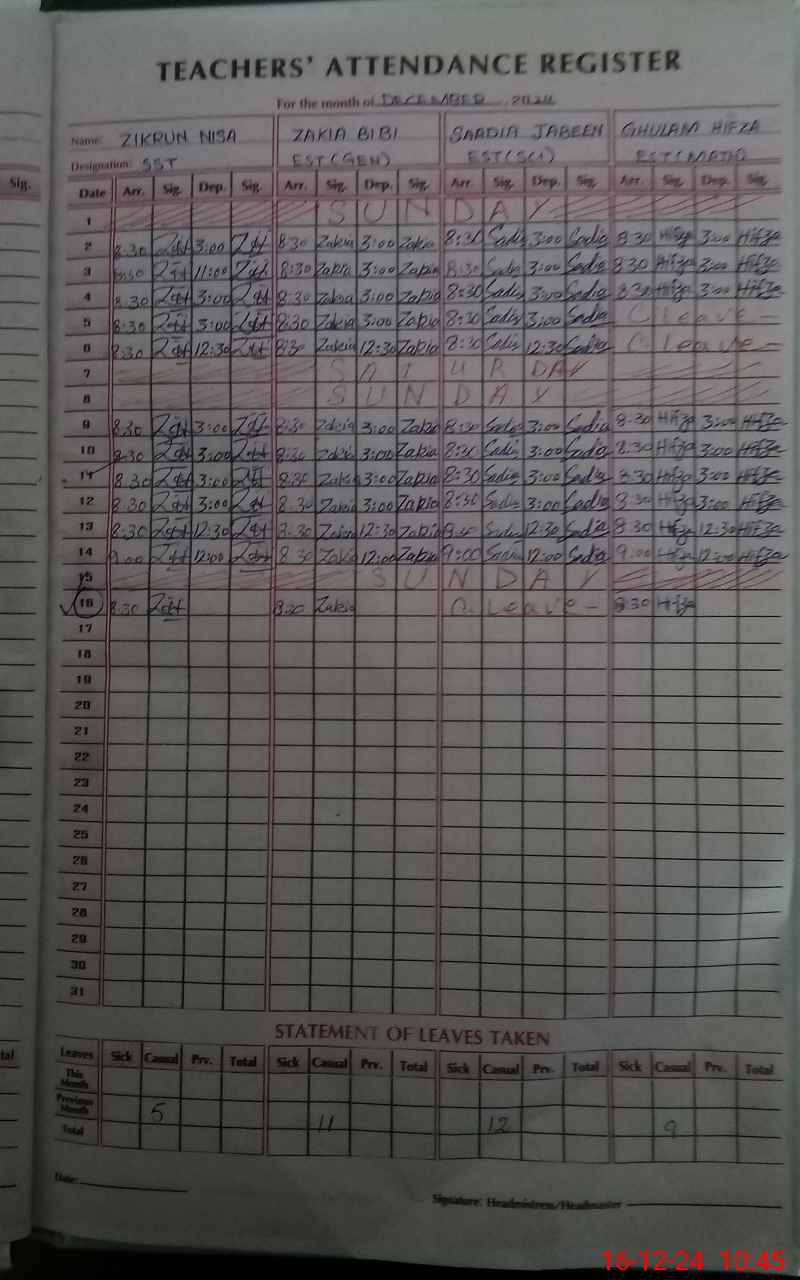 TEACHERS' ATTENDANCE REGISTER
For the month of DECEMBER, 2024
Name: ZIKRUN NISA ZAKIA BIBI SAADIA JABEEN GHULAM HIFZA
Designation: SST EST(GEN) EST(SCI) EST(MATH)
Sig. Date Arr. Sig. Dep. Sig. Arr. Sig. Dep. Sig. Arr. Sig. Dep. Sig. Arr. Sig. Dep. Sig.
1 SUNDAY
2 8:30 3:00 8:30 Zakia 3:00 Zakia 8:30 Sadia 3:00 Sadia 8:30 Hifza 3:00 Hifza
3 11:00 8:30 Zakia 3:00 Zakia 8:30 Sadia 3:00 Sadia 8:30 Hifza 3:00 Hifza
4 8:30 3:00 8:30 Zakia 3:00 Zakia 8:30 Sadia 3:00 Sadia 8:30 Hifza 3:00 Hifza
5 8:30 3:00 8:30 Zakia 3:00 Zakia 8:30 Sadia 3:00 Sadia C. Leave -
6 8:30 12:30 8:30 Zakia 12:30 Zakia 8:30 Sadia 12:30 Sadia C. Leave -
7 SATURDAY
8 SUNDAY
9 8:30 3:00 8:30 Zakia 3:00 Zakia 8:30 Sadia 3:00 Sadia 8:30 Hifza 3:00 Hifza
10 8:30 3:00 8:30 Zakia 3:00 Zakia 8:30 Sadia 3:00 Sadia 8:30 Hifza 3:00 Hifza
11 8:30 3:00 8:30 Zakia 3:00 Zakia 8:30 Sadia 3:00 Sadia 8:30 Hifza 3:00 Hifza
12 8:30 3:00 8:30 Zakia 3:00 Zakia 8:30 Sadia 3:00 Sadia 8:30 Hifza 3:00 Hifza
13 8:30 12:30 8:30 Zakia 12:30 Zakia Sadia 12:30 Sadia 8:30 Hifza 12:30 Hifza
14 9:00 12:00 8:30 Zakia 12:00 Zakia 9:00 Sadia 12:00 Sadia 9:00 Hifza 12:00 Hifza
15 SUNDAY
16 8:30 8:30 Zakia C. Leave - 8:30 Hifza
17
18
19
20
21
22
23
24
25
26
27
28
29
30
31
STATEMENT OF LEAVES TAKEN
Leaves Sick Casual Prv. Total Sick Casual Prv. Total Sick Casual Prv. Total Sick Casual Prv. Total
This Month
Previous Month 5 11 12 9
Total
Date:
Signature: Headmistress/Headmaster
16-12-24 10:45